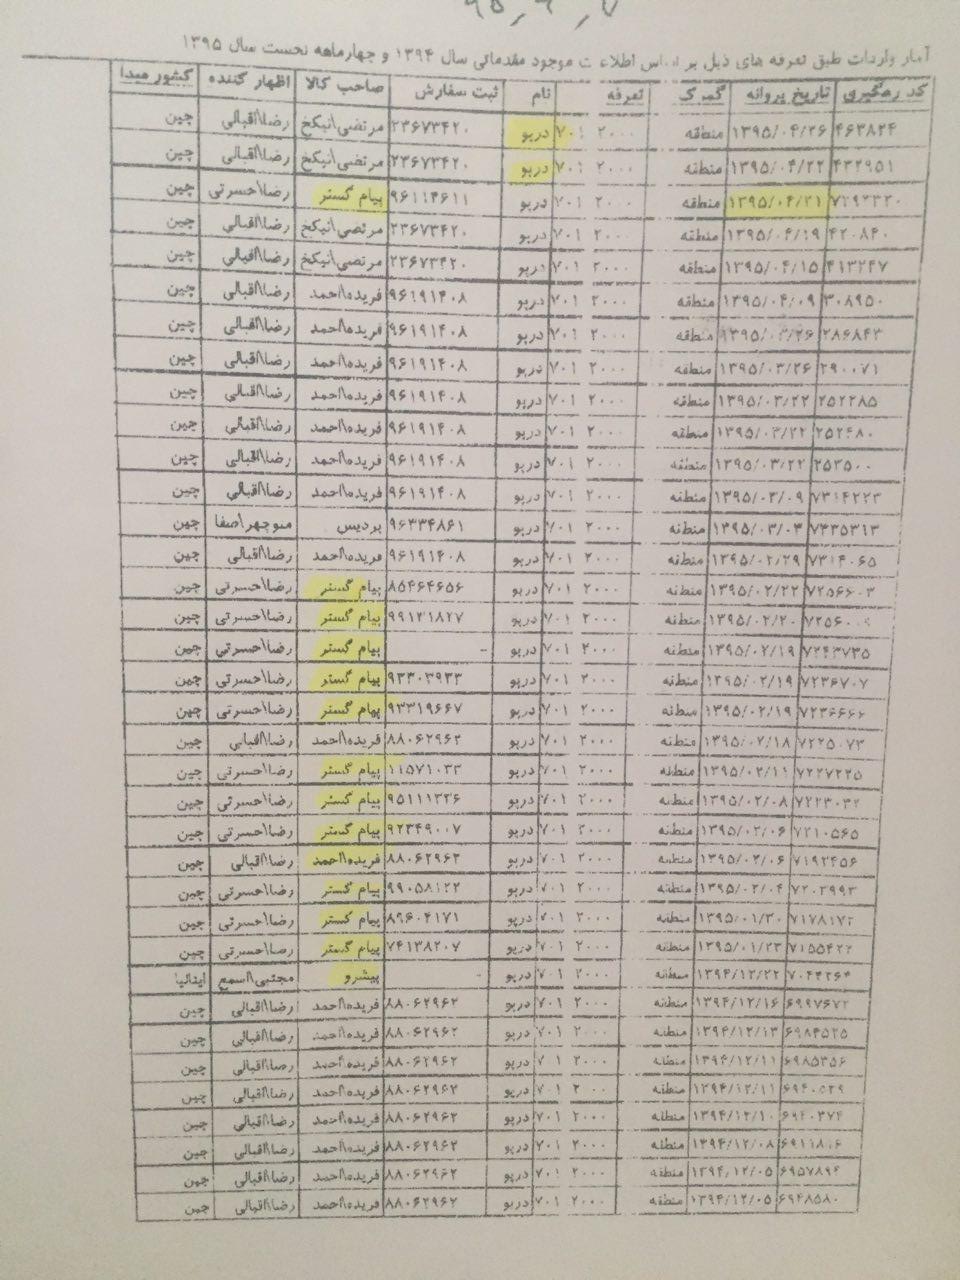 ۹۵,۹,۷
آمار واردات طبق تعرفه های ذیل بر اساس اطلاعات موجود مقدماتی سال ۱۳۹۴ و چهارماهه نخست سال ۱۳۹۵
کد رهگیری تاریخ پروانه گمرک تعرفه نام ثبت سفارش صاحب کالا اظهار کننده کشور مبدا
۴۶۳۸۲۴ ۱۳۹۵/۰۴/۲۶ منطقه ۲۰۰۰ ۷۰۱ درپو ۲۳۶۷۳۴۲۰ مرتضی\نیکخ رضا\اقبالی چین
۴۳۲۹۵۱ ۱۳۹۵/۰۴/۲۲ منطقه ۲۰۰۰ ۷۰۱ درپو ۲۳۶۷۳۴۲۰ مرتضی\نیکخ رضا\اقبالی چین
۷۲۹۲۳۲۰ ۱۳۹۵/۰۴/۲۱ منطقه ۲۰۰۰ ۷۰۱ درپو ۹۶۱۱۴۶۱۱ پیام گستر رضا\حسرتی چین
۴۲۰۸۴۰ ۱۳۹۵/۰۴/۱۹ منطقه ۲۰۰۰ ۷۰۱ درپو ۲۳۶۷۳۴۲۰ مرتضی\نیکخ رضا\اقبالی چین
۴۱۳۲۴۷ ۱۳۹۵/۰۴/۱۵ منطقه ۲۰۰۰ ۷۰۱ درپو ۲۳۶۷۳۴۲۰ مرتضی\نیکخ رضا\اقبالی چین
۳۰۸۹۵۰ ۱۳۹۵/۰۴/۰۹ منطقه ۲۰۰۰ ۷۰۱ درپو ۹۶۱۹۱۴۰۸ فریده\احمد رضا\اقبالی چین
۲۸۶۸۴۳ ۱۳۹۵/۰۳/۲۶ منطقه ۲۰۰۰ ۷۰۱ درپو ۹۶۱۹۱۴۰۸ فریده\احمد رضا\اقبالی چین
۲۹۰۰۷۱ ۱۳۹۵/۰۳/۲۶ منطقه ۲۰۰۰ ۷۰۱ درپو ۹۶۱۹۱۴۰۸ فریده\احمد رضا\اقبالی چین
۲۵۲۲۸۵ ۱۳۹۵/۰۳/۲۲ منطقه ۲۰۰۰ ۷۰۱ درپو ۹۶۱۹۱۴۰۸ فریده\احمد رضا\اقبالی چین
۲۵۲۴۸۰ ۱۳۹۵/۰۳/۲۲ منطقه ۲۰۰۰ ۷۰۱ درپو ۹۶۱۹۱۴۰۸ فریده\احمد رضا\اقبالی چین
۲۵۳۵۰۰ ۱۳۹۵/۰۳/۲۲ منطقه ۲۰۰۰ ۷۰۱ درپو ۹۶۱۹۱۴۰۸ فریده\احمد رضا\اقبالی چین
۷۳۱۴۲۲۳ ۱۳۹۵/۰۳/۰۹ منطقه ۲۰۰۰ ۷۰۱ درپو ۹۶۱۹۱۴۰۸ فریده\احمد رضا\اقبالی چین
۷۳۳۵۳۱۳ ۱۳۹۵/۰۳/۰۳ منطقه ۲۰۰۰ ۷۰۱ درپو ۹۶۳۳۴۸۶۱ پردیس منوچهر\صفا چین
۷۳۱۴۰۶۵ ۱۳۹۵/۰۲/۲۹ منطقه ۲۰۰۰ ۷۰۱ درپو ۹۶۱۹۱۴۰۸ فریده\احمد رضا\اقبالی چین
۷۲۵۶۶۰۳ ۱۳۹۵/۰۲/۲۲ منطقه ۲۰۰۰ ۷۰۱ درپو ۸۵۴۶۴۶۵۶ پیام گستر رضا\حسرتی چین
۱۳۹۵/۰۲/۲۰ منطقه ۲۰۰۰ ۷۰۱ درپو ۹۹۱۳۱۸۲۷ پیام گستر رضا\حسرتی چین
۷۲۴۳۷۳۵ ۱۳۹۵/۰۲/۱۹ منطقه ۲۰۰۰ ۷۰۱ درپو - پیام گستر رضا\حسرتی چین
۷۲۳۶۷۰۷ ۱۳۹۵/۰۲/۱۹ منطقه ۲۰۰۰ ۷۰۱ درپو ۹۳۳۰۳۹۳۳ پیام گستر رضا\حسرتی چین
۷۲۳۶۶۶۶ ۱۳۹۵/۰۲/۱۹ منطقه ۲۰۰۰ ۷۰۱ درپو ۹۳۳۱۹۶۶۷ پیام گستر رضا\حسرتی چین
۷۲۲۵۰۷۳ ۱۳۹۵/۰۲/۱۸ منطقه ۲۰۰۰ ۷۰۱ درپو ۸۸۰۶۲۹۶۲ فریده\احمد رضا\اقبالی چین
۷۲۲۷۲۲۵ ۱۳۹۵/۰۲/۱۱ منطقه ۲۰۰۰ ۷۰۱ درپو ۱۱۵۷۱۰۳۳ پیام گستر رضا\حسرتی چین
۷۲۲۳۰۳۲ ۱۳۹۵/۰۲/۰۸ منطقه ۲۰۰۰ ۷۰۱ درپو ۹۵۱۱۱۳۳۶ پیام گستر رضا\حسرتی چین
۷۲۱۰۵۶۵ ۱۳۹۵/۰۲/۰۶ منطقه ۲۰۰۰ ۷۰۱ درپو ۹۲۳۴۹۰۰۷ پیام گستر رضا\حسرتی چین
۷۱۹۲۴۵۶ ۱۳۹۵/۰۲/۰۶ منطقه ۲۰۰۰ ۷۰۱ درپو ۸۸۰۶۲۹۶۲ فریده\احمد رضا\اقبالی چین
۷۲۰۲۹۹۳ ۱۳۹۵/۰۲/۰۴ منطقه ۲۰۰۰ ۷۰۱ درپو ۹۹۰۵۸۱۲۲ پیام گستر رضا\حسرتی چین
۷۱۷۸۱۷۲ ۱۳۹۵/۰۱/۳۰ منطقه ۲۰۰۰ ۷۰۱ درپو ۸۹۶۰۴۱۷۱ پیام گستر رضا\حسرتی چین
۷۱۵۵۴۲۲ ۱۳۹۵/۰۱/۲۳ منطقه ۲۰۰۰ ۷۰۱ درپو ۷۴۱۳۸۲۰۷ پیام گستر رضا\حسرتی چین
۷۰۴۴۲۶۴ ۱۳۹۴/۱۲/۲۲ منطقه ۲۰۰۰ ۷۰۱ درپو - پیشرو مجتبی\اسمع ایتالیا
۶۹۹۷۶۷۲ ۱۳۹۴/۱۲/۱۶ منطقه ۲۰۰۰ ۷۰۱ درپو ۸۸۰۶۲۹۶۲ فریده\احمد رضا\اقبالی چین
۶۹۸۴۵۲۵ ۱۳۹۴/۱۲/۱۳ منطقه ۲۰۰۰ ۷۰۱ درپو ۸۸۰۶۲۹۶۲ فریده\احمد رضا\اقبالی چین
۶۹۸۵۳۵۶ ۱۳۹۴/۱۲/۱۱ منطقه ۲۰۰۰ ۷۰۱ درپو ۸۸۰۶۲۹۶۲ فریده\احمد رضا\اقبالی چین
۶۹۴۰۵۲۹ ۱۳۹۴/۱۲/۱۱ منطقه ۲۰۰۰ ۷۰۱ درپو ۸۸۰۶۲۹۶۲ فریده\احمد رضا\اقبالی چین
۶۹۴۰۳۷۴ ۱۳۹۴/۱۲/۱۰ منطقه ۲۰۰۰ ۷۰۱ درپو ۸۸۰۶۲۹۶۲ فریده\احمد رضا\اقبالی چین
۱۳۹۴/۱۲/۰۸ منطقه ۲۰۰۰ ۷۰۱ درپو ۸۸۰۶۲۹۶۲ فریده\احمد رضا\اقبالی چین
۶۹۵۷۸۹۴ ۱۳۹۴/۱۲/۰۵ منطقه ۲۰۰۰ ۷۰۱ درپو ۸۸۰۶۲۹۶۲ فریده\احمد رضا\اقبالی چین
۶۹۴۸۵۸۰ ۱۳۹۴/۱۲/۰۵ منطقه ۲۰۰۰ ۷۰۱ درپو ۸۸۰۶۲۹۶۲ فریده\احمد رضا\اقبالی چین